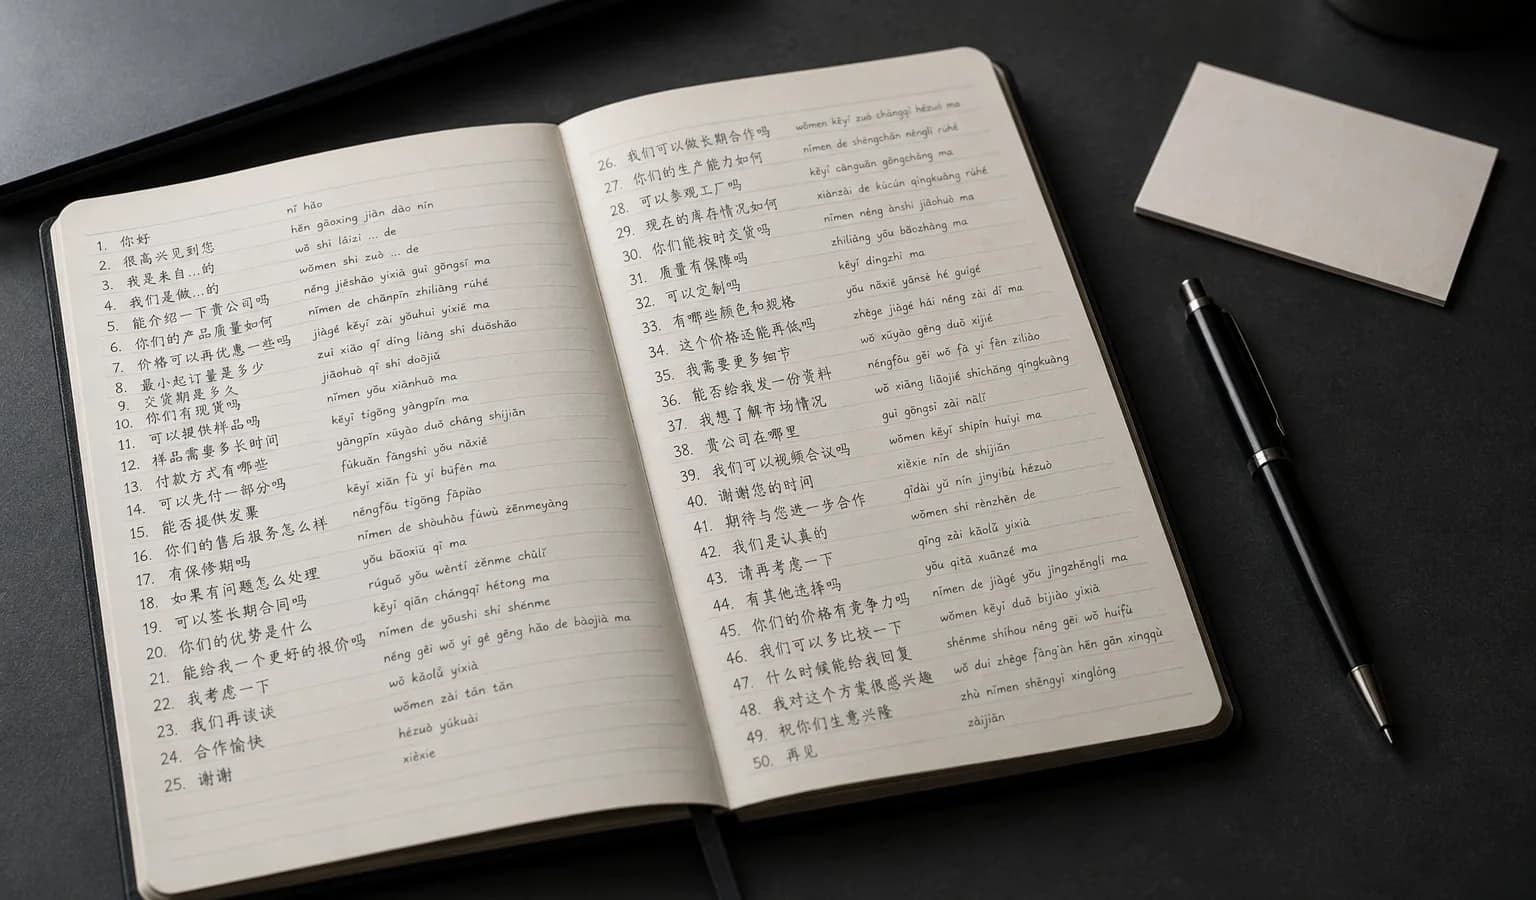 1. 你好 nǐ hǎo
2. 很高兴见到您 hěn gāoxìng jiàn dào nín
3. 我是来自...的 wǒ shì láizì ... de
4. 我们是做...的 wǒmen shì zuò ... de
5. 能介绍一下贵公司吗 néng jièshào yíxià guì gōngsī ma
6. 你们的产品质量如何 nǐmen de chǎnpǐn zhìliàng rúhé
7. 价格可以再优惠一些吗 jiàgé kěyǐ zài yōuhuì yìxiē ma
8. 最小起订量是多少 zuì xiǎo qǐ dìng liàng shì duōshǎo
9. 交货期是多久 jiāohuò qī shì duōjiǔ
10. 你们有现货吗 nǐmen yǒu xiànhuò ma
11. 可以提供样品吗 kěyǐ tígōng yàngpǐn ma
12. 样品需要多长时间 yàngpǐn xūyào duō cháng shíjiān
13. 付款方式有哪些 fùkuǎn fāngshì yǒu nǎxiē
14. 可以先付一部分吗 kěyǐ xiān fù yí bùfèn ma
15. 能否提供发票 néngfǒu tígōng fāpiào
16. 你们的售后服务怎么样 nǐmen de shòuhòu fúwù zěnmeyàng
17. 有保修期吗 yǒu bǎoxiū qī ma
18. 如果有问题怎么处理 rúguǒ yǒu wèntí zěnme chǔlǐ
19. 可以签长期合同吗 kěyǐ qiān chángqī hétong ma
20. 你们的优势是什么 nǐmen de yōushì shì shénme
21. 能给我一个更好的报价吗 néng gěi wǒ yí gè gèng hǎo de bàojià ma
22. 我考虑一下 wǒ kǎolǜ yíxià
23. 我们再谈谈 wǒmen zài tán tán
24. 合作愉快 hézuò yúkuài
25. 谢谢 xièxie
26. 我们可以做长期合作吗 wǒmen kěyǐ zuò chángqī hézuò ma
27. 你们的生产能力如何 nǐmen de shēngchǎn nénglì rúhé
28. 可以参观工厂吗 kěyǐ cānguān gōngchǎng ma
29. 现在的库存情况如何 xiànzài de kùcún qíngkuàng rúhé
30. 你们能按时交货吗 nǐmen néng ànshí jiāohuò ma
31. 质量有保障吗 zhìliàng yǒu bǎozhàng ma
32. 可以定制吗 kěyǐ dìngzhì ma
33. 有哪些颜色和规格 yǒu nǎxiē yánsè hé guīgé
34. 这个价格还能再低吗 zhège jiàgé hái néng zài dī ma
35. 我需要更多细节 wǒ xūyào gèng duō xìjié
36. 能否给我发一份资料 néngfǒu gěi wǒ fā yí fèn zīliào
37. 我想了解市场情况 wǒ xiǎng liǎojiě shìchǎng qíngkuàng
38. 贵公司在哪里 guì gōngsī zài nǎlǐ
39. 我们可以视频会议吗 wǒmen kěyǐ shìpín huìyì ma
40. 谢谢您的时间 xièxie nín de shíjiān
41. 期待与您进一步合作 qīdài yǔ nín jìnyíbù hézuò
42. 我们是认真的 wǒmen shì rènzhēn de
43. 请再考虑一下 qǐng zài kǎolǜ yíxià
44. 有其他选择吗 yǒu qítā xuǎnzé ma
45. 你们的价格有竞争力吗 nǐmen de jiàgé yǒu jìngzhēnglì ma
46. 我们可以多比较一下 wǒmen kěyǐ duō bǐjiào yíxià
47. 什么时候能给我回复 shénme shíhou néng gěi wǒ huífù
48. 我对这个方案很感兴趣 wǒ duì zhège fāng'àn hěn gǎn xìngqù
49. 祝你们生意兴隆 zhù nǐmen shēngyì xīnglóng
50. 再见 zàijiàn